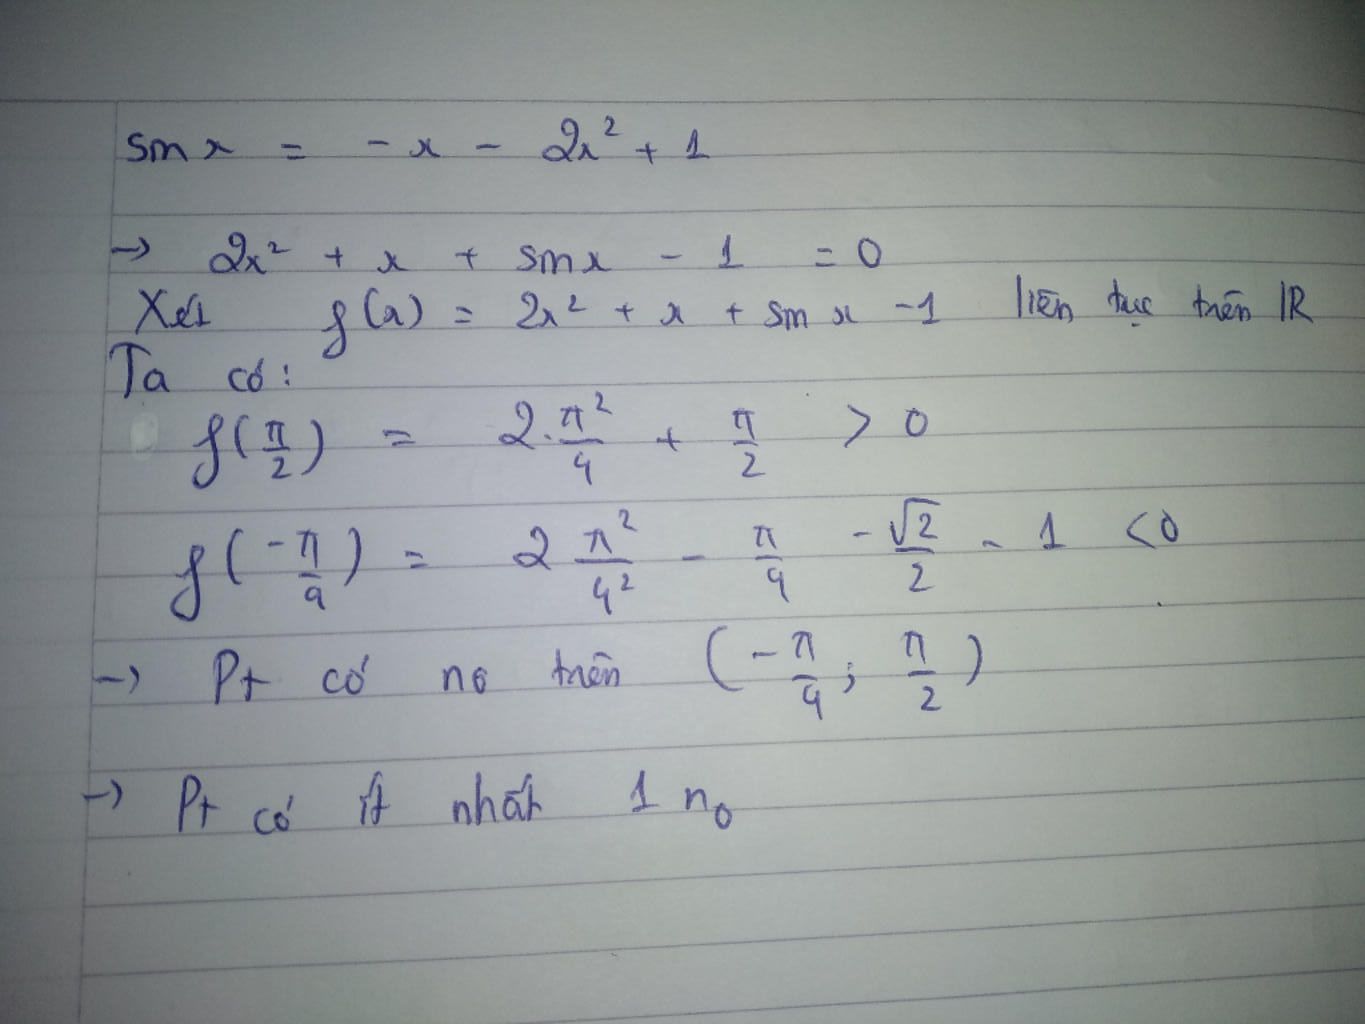 sin x = -x - 2x² + 1
→ 2x² + x + sin x - 1 = 0
Xét f(x) = 2x² + x + sin x - 1 liên tục trên ℝ
Ta có:
f(π/2) = 2.π²/4 + π/2 > 0
f(-π/4) = 2 π²/4² - π/4 - √2/2 - 1 < 0
→ Pt có no trên (-π/4; π/2)
→ Pt có ít nhất 1 no